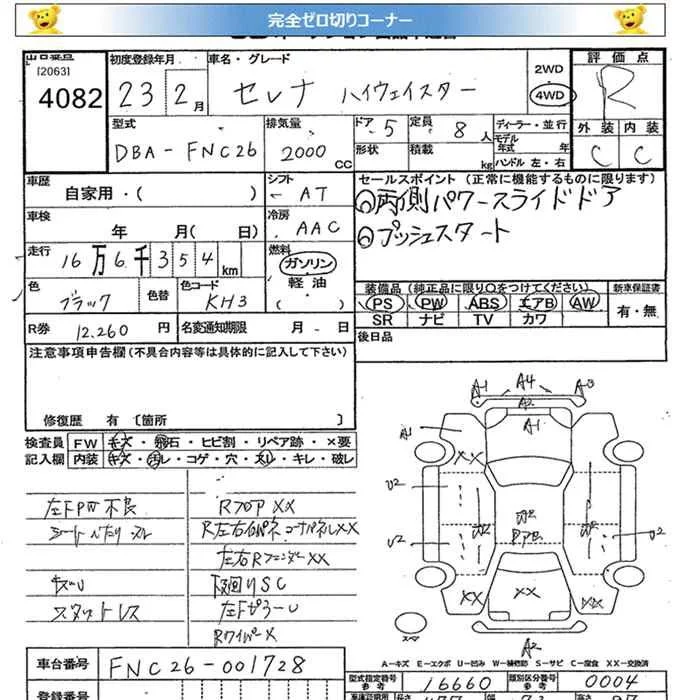 完全ゼロ切りコーナー
出品番号
[2063]
4082
初度登録年月
23 2月
車名・グレード
セレナ ハイウェイスター
2WD
4WD
評価点
R
外装 内装
C C
型式
DBA-FNC26
排気量
2000 CC
ドア 5
定員 8人
形状
積載 kg
ディーラー・並行
モデル年式 年
ハンドル 左・右
車歴
自家用・( )
シフト
AT
セールスポイント (正常に機能するものに限ります)
◎両側パワースライドドア
◎プッシュスタート
車検
年 月( 日)
冷房
AAC
走行
16万6千354km
燃料
ガソリン
軽油
( )
色
ブラック
色替
色コード
KH3
装備品 (純正品に限り○をつけてください)
PS PW ABS エアB AW
SR ナビ TV カワ
新車保証書
有・無
R券 12.260 円
名変通知期限 月 - 日
後日品
注意事項申告欄(不具合内容等は具体的に記入して下さい)
修復歴 有〔箇所 〕
検査員 FW キズ・飛石・ヒビ割・リペア跡・×要
記入欄 内装 キズ・汚レ・コゲ・穴・スレ・キレ・破レ
左FPW不良
シートへたり スレ
スタットレス
RフロアXX
R左右インパネ コーナパネルXX
左右RフェンダーXX
下廻りSC
RワイパーX
A1 A4 A3
A2
A1
A1
XX
U2
U2
U2
XX
XX
XX
A2
スペア
A-キズ E-エクボ U-凹み W-補修跡 S-サビ C-腐食 XX-交換済
車台番号
FNC26-001728
型式指定番号
参考
16660
類別区分番号
参考
0004
登録番号